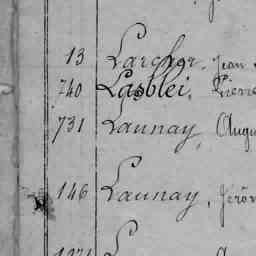 13 Larcher, Jean
740 Lasblei, Pierre
731 Launay, Augu
146 Launay, Jérôm